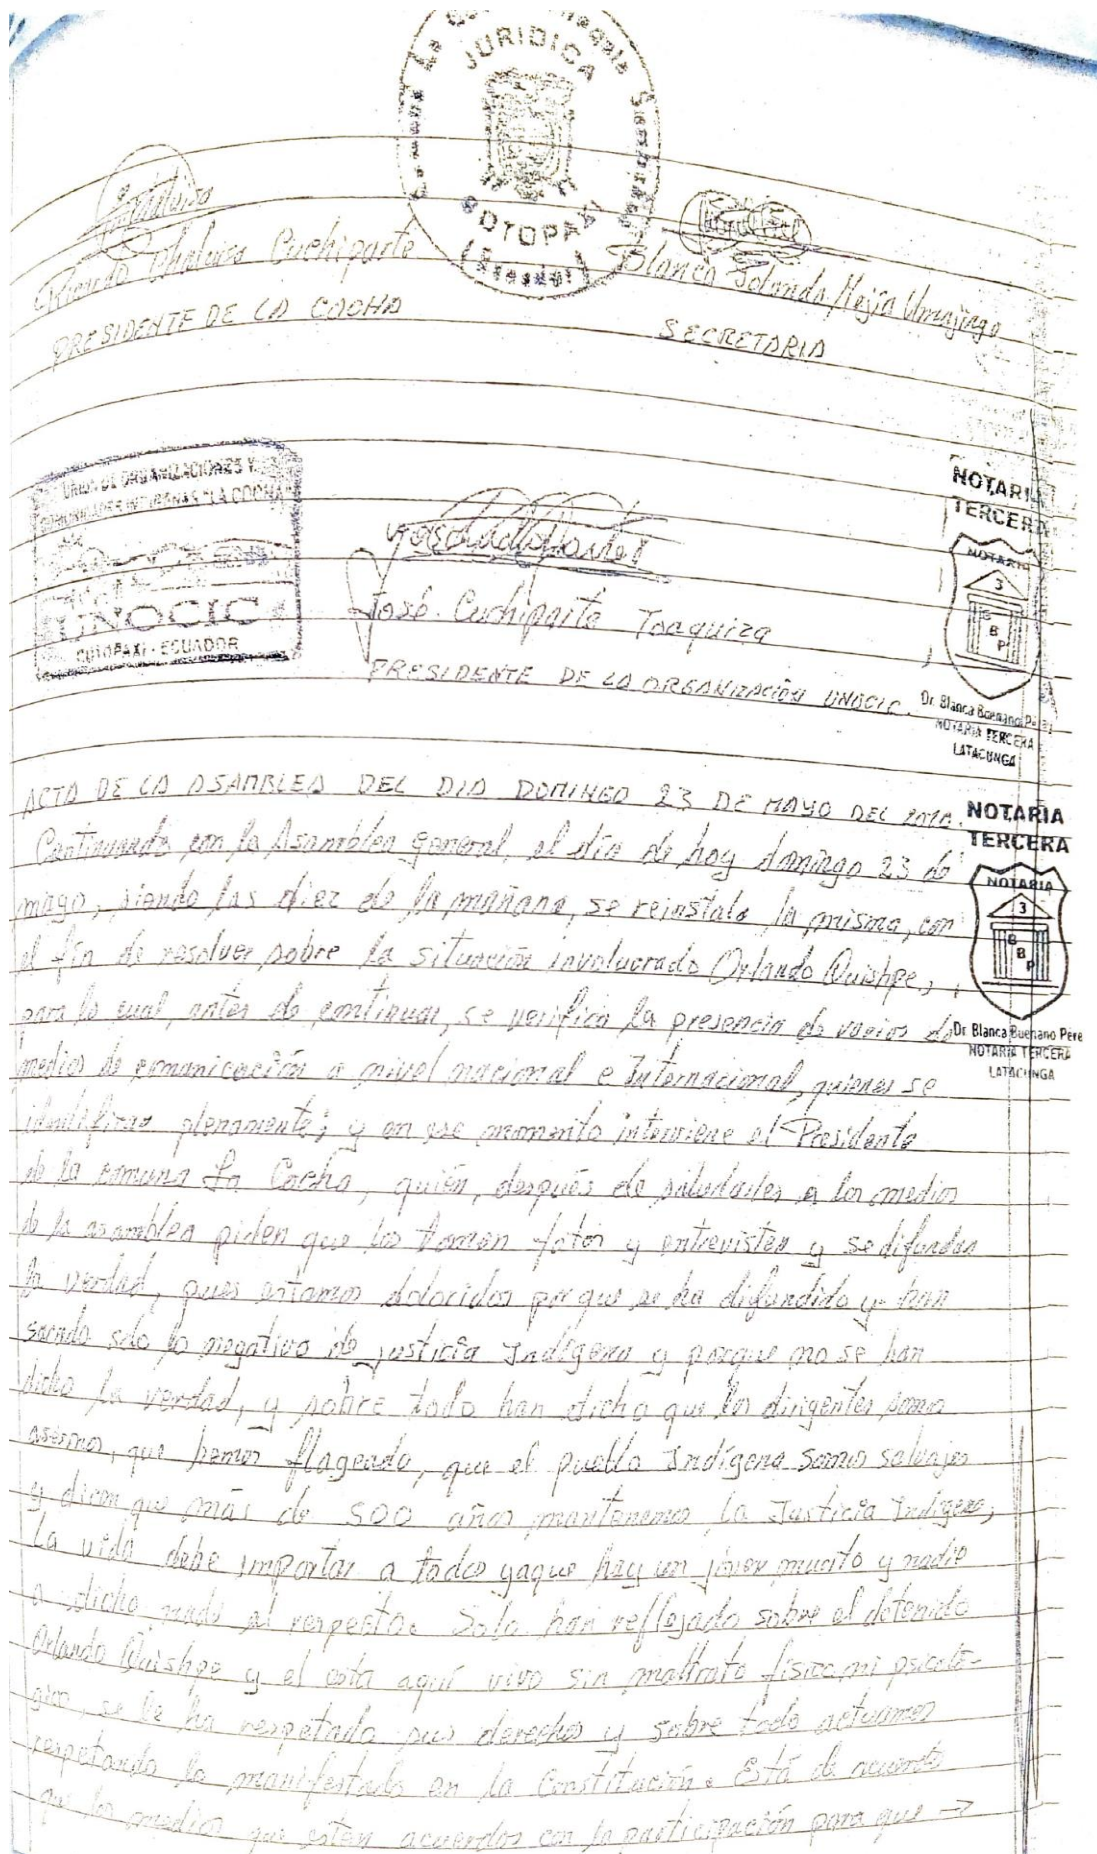 JURIDICA
COTOPAXI
(Ecuador)
Ricardo Chaluisa Cuchiparte
Blanca Yolanda Mejía Umajinga
PRESIDENTE DE LA COCHA
SECRETARIA
UNION DE ORGANIZACIONES Y
COMUNIDADES INDIGENAS "LA COCHA"
UNOCIC
COTOPAXI - ECUADOR
José Cuchiparte Toaquiza
PRESIDENTE DE LA ORGANIZACIÓN UNOCIC.
NOTARIA
TERCERA
NOTARIA
3
B
B
P
Dr. Blanca Buenano Pere
NOTARIA TERCERA
LATACUNGA
ACTA DE LA ASAMBLEA DEL DIA DOMINGO 23 DE MAYO DEL 2010.
NOTARIA
TERCERA
NOTARIA
3
B
B
P
Dr Blanca Buenano Pere
NOTARIA TERCERA
LATACUNGA
Continuando con la Asamblea general, el día de hoy domingo 23 de
mayo, siendo las diez de la mañana, se reinstala la misma, con
el fin de resolver sobre la situación involucrado Orlando Quishpe,
para lo cual, antes de continuar, se verifica la presencia de varios de
medios de comunicación a nivel nacional e Internacional, quienes se
identifican plenamente; y en ese momento interviene el Presidente
de la comuna La Cocha, quién, después de saludarles a los medios
de la asamblea piden que los tomen fotos y entrevisten y se difundan
la verdad, pues estamos doloridos porque se ha difundido y han
sacado solo lo negativo de justicia Indígena y porque no se han
dicho la verdad, y sobre todo han dicho que los dirigentes somos
asesinos, que hemos flageado, que el pueblo Indígena somos salvajes
y dicen que más de 500 años mantenemos la Justicia Indígena,
La vida debe importar a todos yaque hay un jóven muerto y nadie
a dicho nada al respecto. Solo han reflejado sobre el detenido
Orlando Quishpe y el esta aquí vivo sin maltrato físico ni psicoló-
gico, se le ha respetado sus derechos y sobre todo actuamos
respetando lo manifestado en la Constitución. Está de acuerdo
que los medios que esten acuerdos con la participación para que →